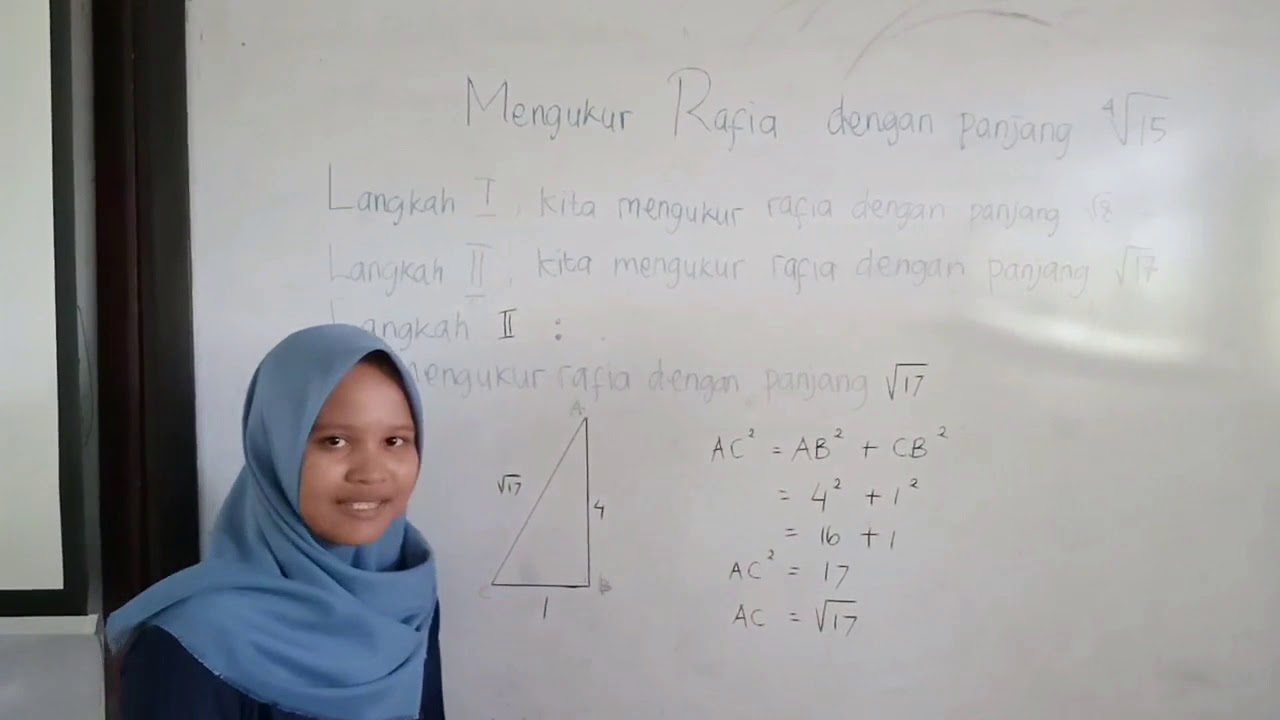 Mengukur Rafia dengan panjang ⁴√15
Langkah I, kita mengukur rafia dengan panjang √8
Langkah II, kita mengukur rafia dengan panjang √17
Langkah II :
mengukur rafia dengan panjang √17
A
√17
4
C
B
1
AC² = AB² + CB²
= 4² + 1²
= 16 + 1
AC² = 17
AC = √17